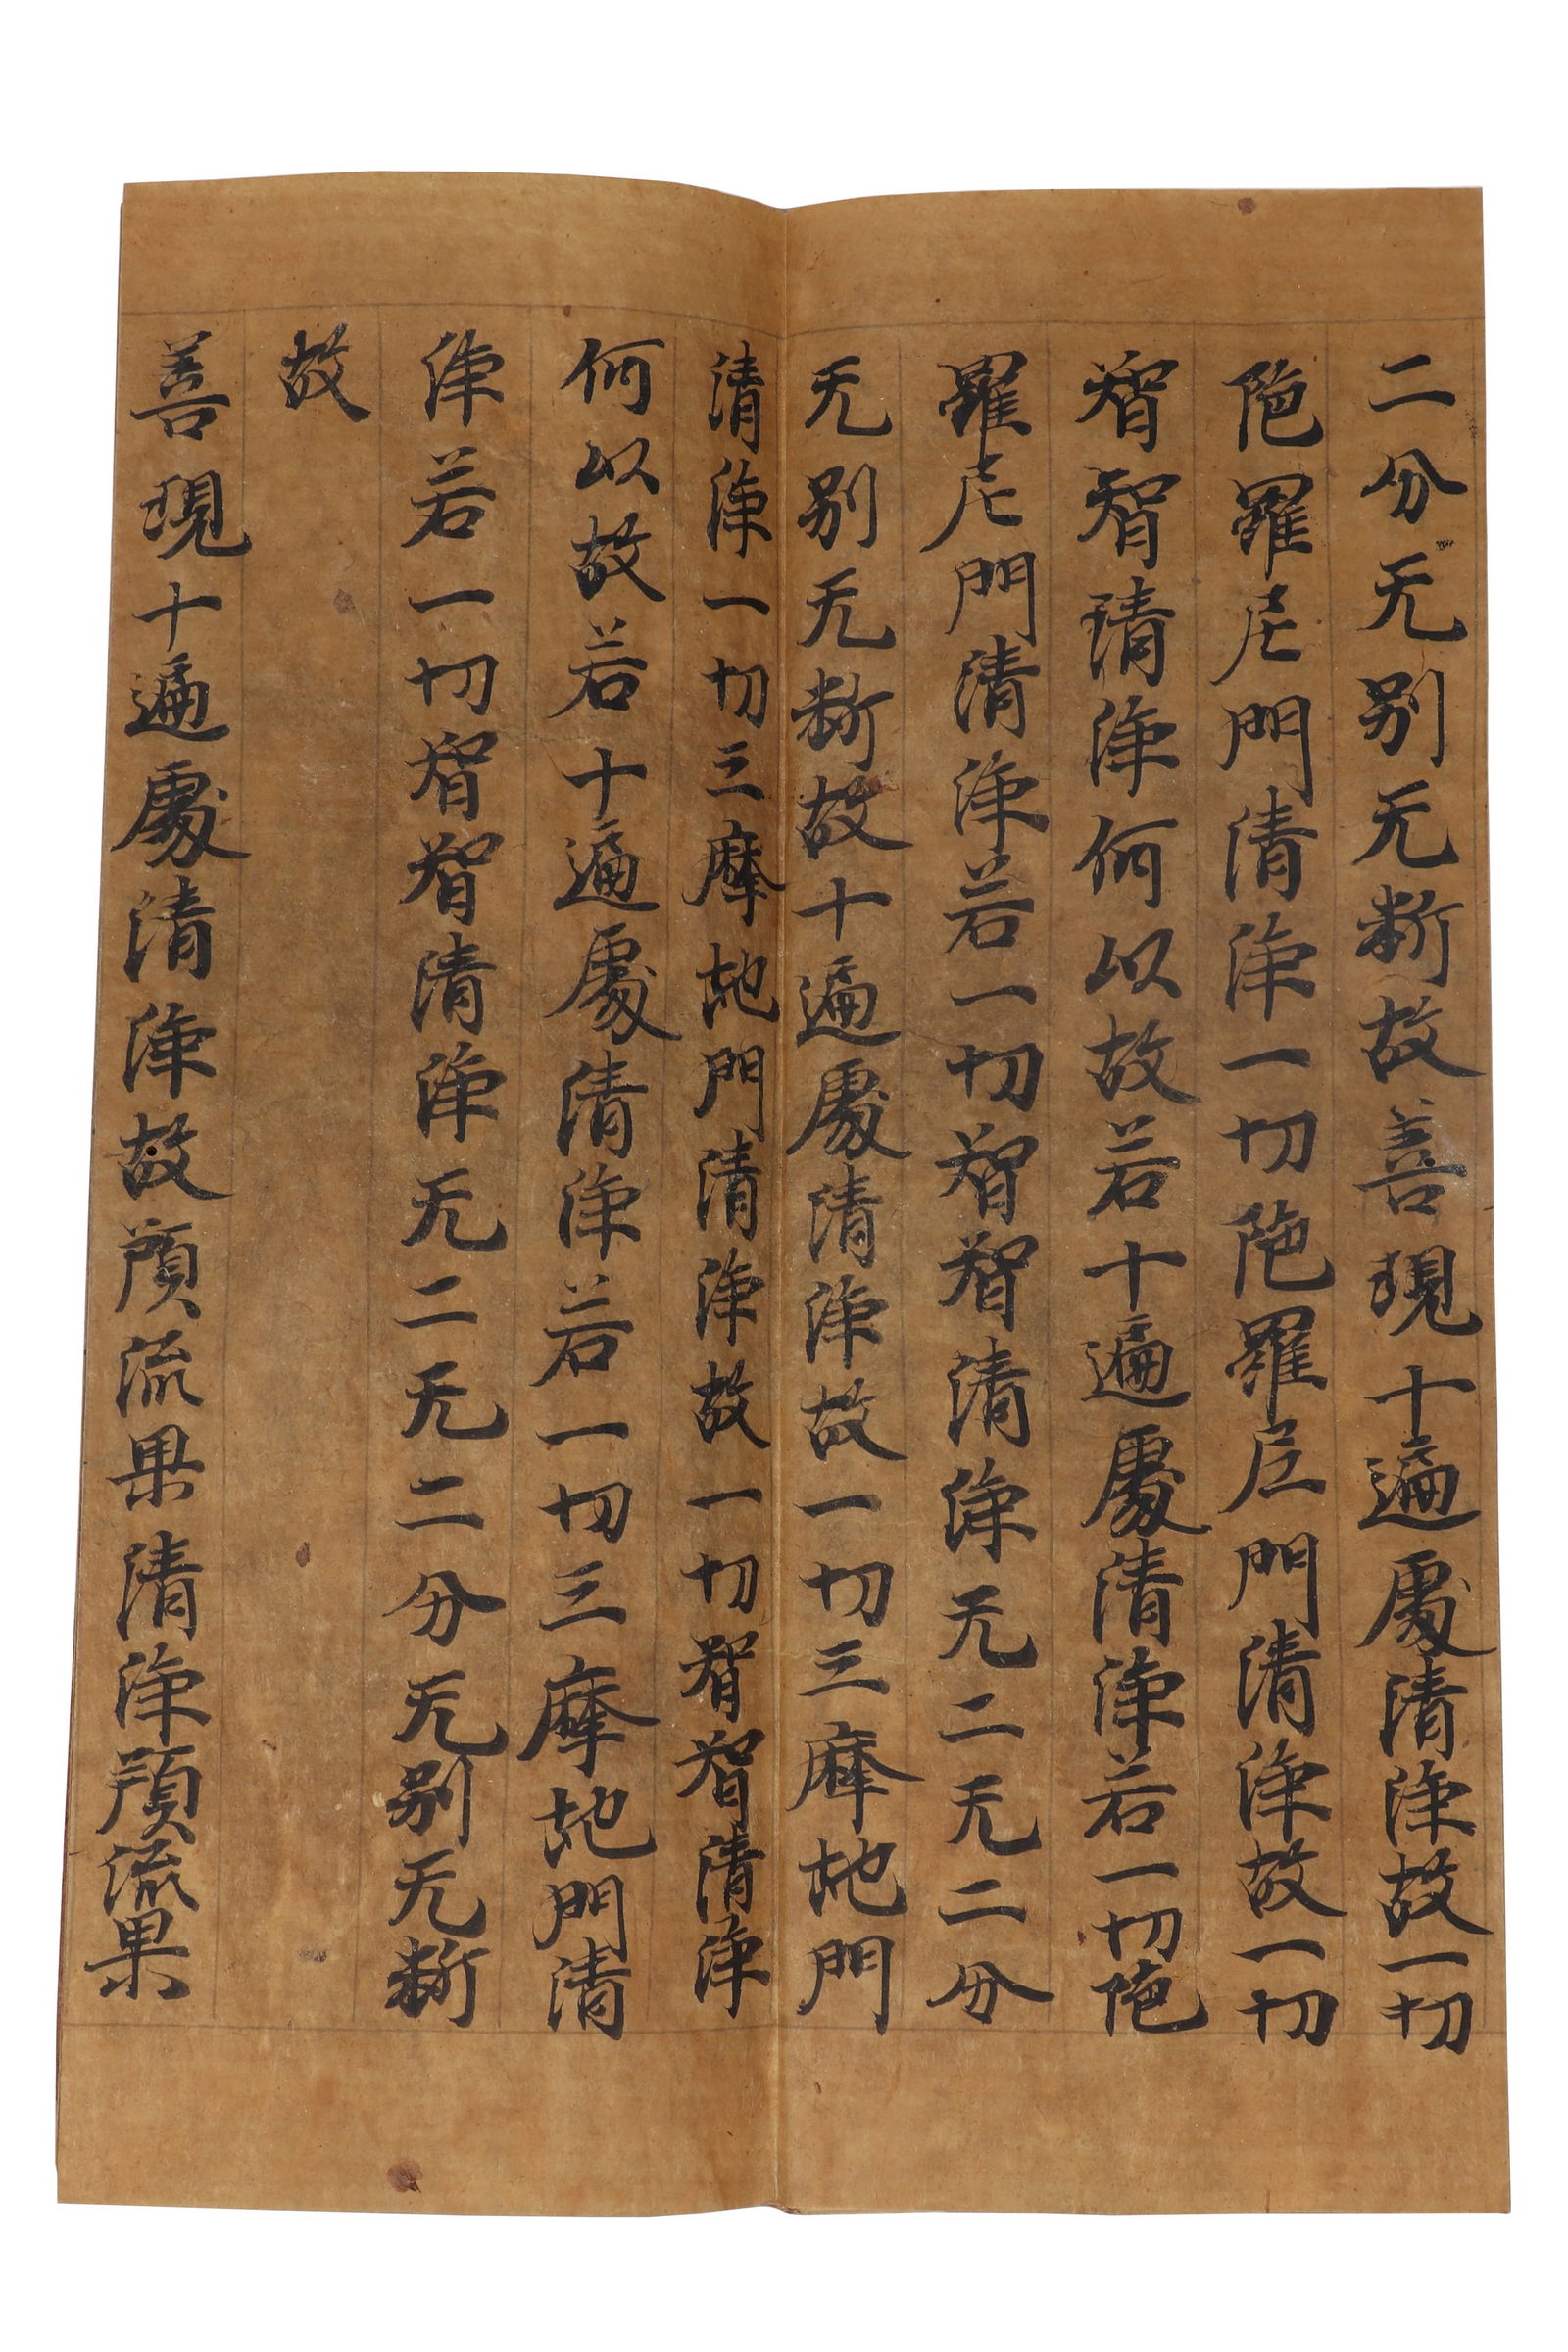 二分无别无斷故善現十遍處清淨故一切
陁羅尼門清淨一切陁羅尼門清淨故一切
智智清淨何以故若十遍處清淨若一切陁
羅尼門清淨若一切智智清淨无二无二分
无别无斷故十遍處清淨故一切三摩地門
清淨一切三摩地門清淨故一切智智清淨
何以故若十遍處清淨若一切三摩地門清
淨若一切智智清淨无二无二分无别无斷
故
善現十遍處清淨故預流果清淨預流果